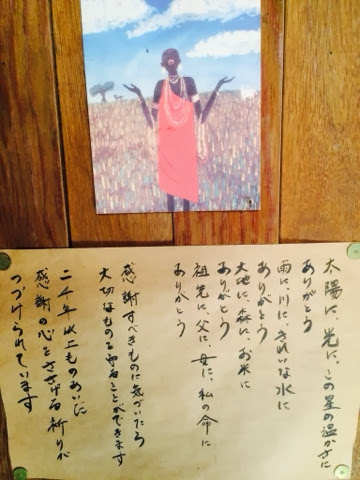 太陽に、光に、この星の温かさに
ありがとう
雨に、川に、きれいな水に
ありがとう
大地に、森に、お米に
ありがとう
祖先に、父に、母に、私の命に
ありがとう
感謝すべきものに気づいたら
大切なものを守ることができます
二千年以上ものあいだ
感謝の心をささげる祈りが
つづけられています